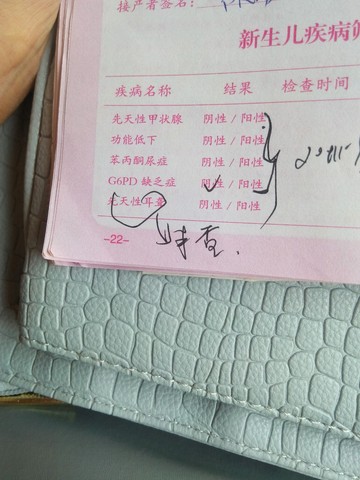 接产者签名：
新生儿疾病筛
疾病名称 结果 检查时间
先天性甲状腺 阴性 / 阳性
功能低下 阴性 / 阳性
苯丙酮尿症 阴性 / 阳性
G6PD 缺乏症 阴性 / 阳性
先天性耳聋 阴性 / 阳性
-22-
未查.